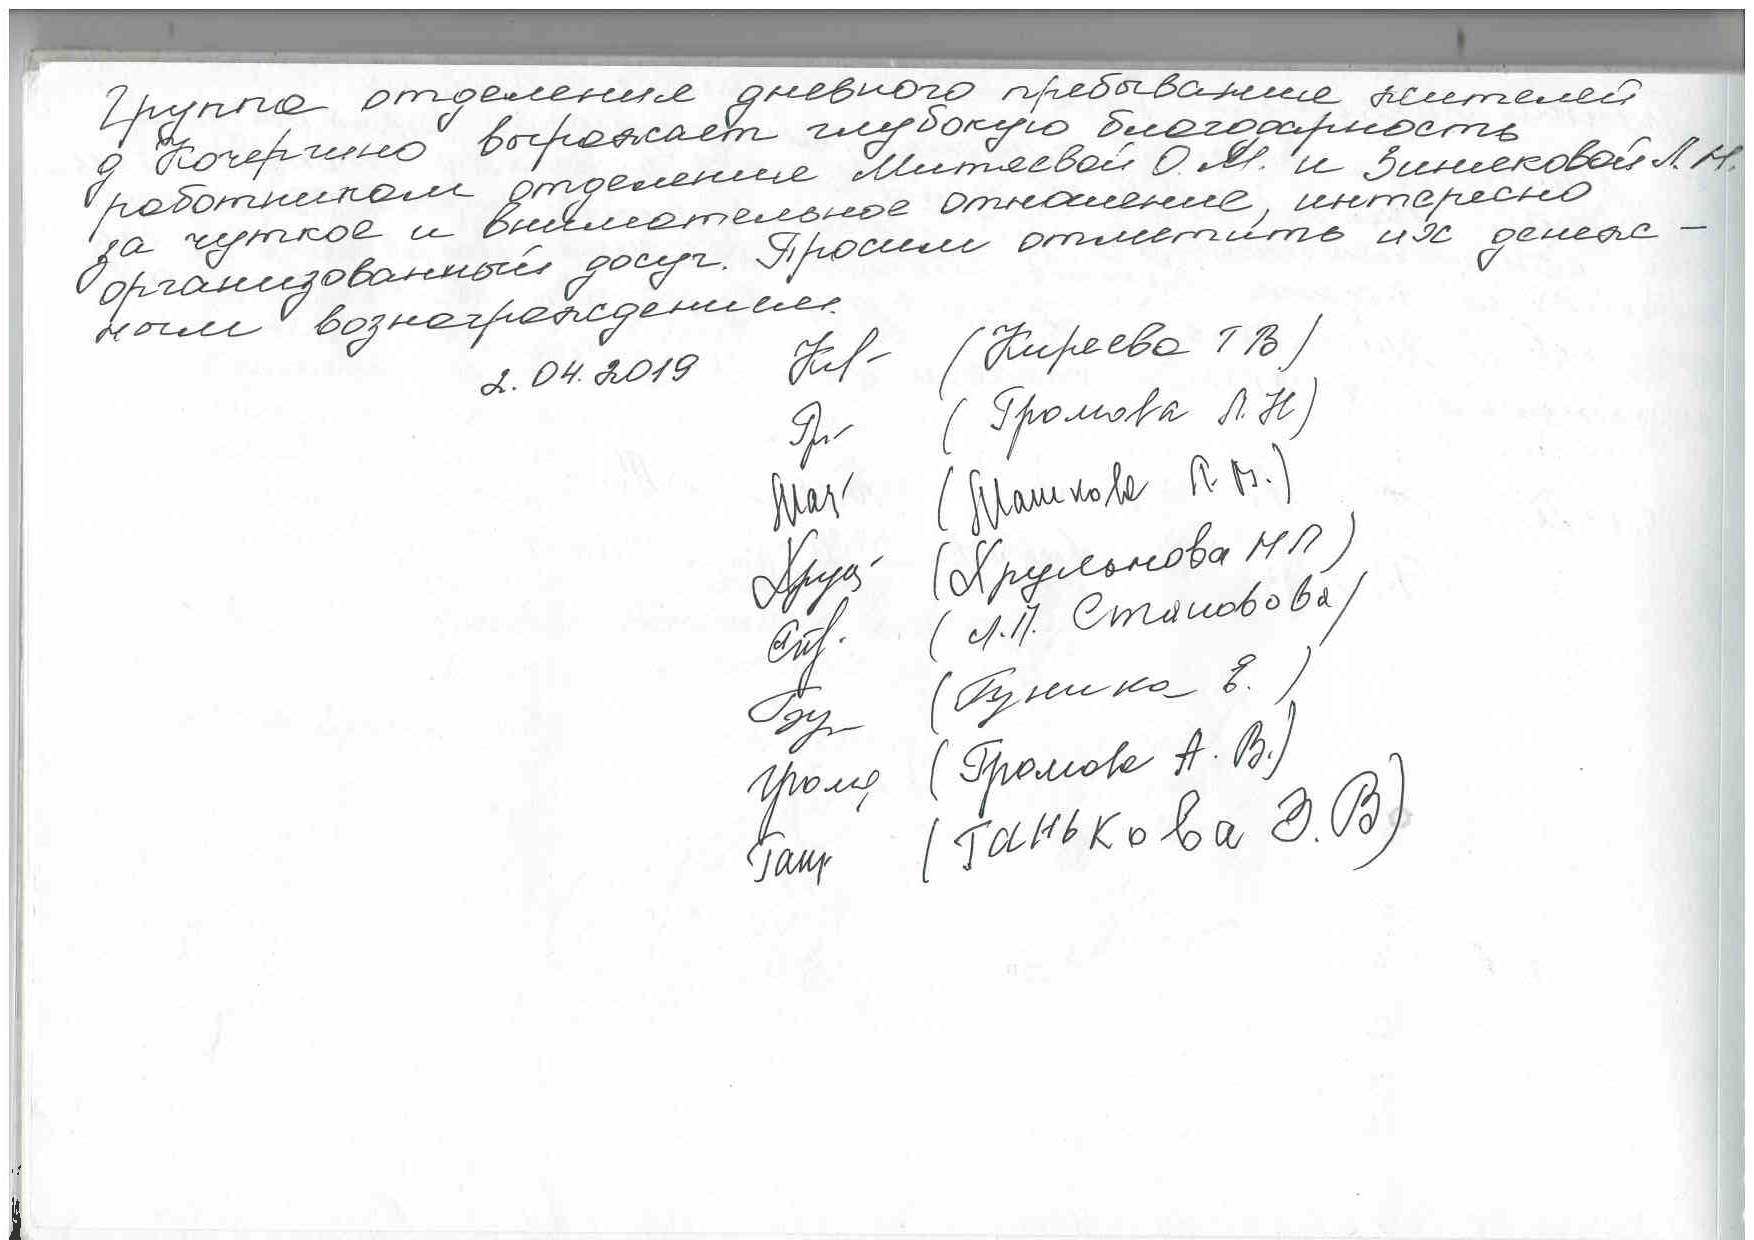 Группа отделения дневного пребывание жителей
д Кочергино выражает глубокую благодарность
работникам отделение Митяевой О.М. и Зиняковой Л.Н.
за чуткое и внимательное отношение, интересно
организованный досуг. Просим отметить их денеж-
ным вознаграждением.
2.04.2019 (Киреева Т В)
(Громова Л.Н)
(Машкова Л.В.)
(Хрульнова Н П)
(Л.П. Становова)
(Гуника Е.)
(Громова А.В.)
(Танькова Э.В)